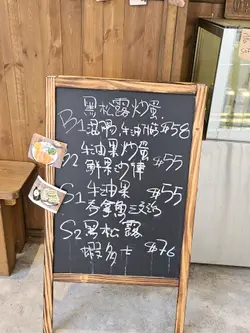 黑松露炒蛋
B1 混醬牛油 $58
B2 牛油果炒蛋
鮮果沙律 $55
S1 牛油果 $55
吞拿魚三文治
S2 黑松露
蝦多士 $76